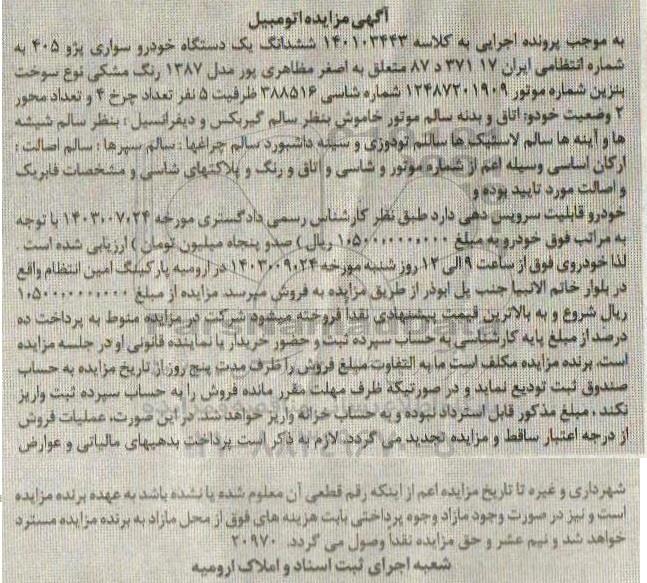 آگهی مزایده اتومبیل
به موجب پرونده اجرایی به کلاسه ۱۴۰۱۰۳۴۴۳ ششدانگ یک دستگاه خودرو سواری پژو ۴۰۵ به
شماره انتظامی ایران ۱۷ ۳۷۱ د ۸۷ متعلق به اصغر مظاهری پور مدل ۱۳۸۷ رنگ مشکی نوع سوخت
بنزین شماره موتور ۱۲۴۸۷۲۰۱۹۰۹ شماره شاسی ۳۸۸۵۱۶ ظرفیت ۵ نفر تعداد چرخ ۴ و تعداد محور
۲ وضعیت خودو: اتاق و بدنه سالم موتور خاموش بنظر سالم گیربکس و دیفرانسیل : بنظر سالم شیشه
ها و آینه ها سالم لاستیک ها سالم تودوزی و سینه داشبورد سالم چراغها : سالم سپرها : سالم اصالت :
ارکان اساسی وسیله اعم از شماره موتور و شاسی و اتاق و رنگ و پلاکتهای شاسی و مشخصات فابریک
و اصالت مورد تایید بوده و
خودرو قابلیت سرویس دهی دارد طبق نظر کارشناس رسمی دادگستری مورخه ۱۴۰۳۰۰۷۰۲۴ با توجه
به مراتب فوق خودرو به مبلغ ۱۰۵۰۰۰۰۰۰۰۰ ریال ) صدو پنجاه میلیون تومان ) ارزیابی شده است .
لذا خودروی فوق از ساعت ۹ الی ۱۲ روز شنبه مورخه ۱۴۰۳۰۰۹۰۲۴ در ارومیه پارکینگ امین انتظام واقع
در بلوار خاتم الانبیا جنب پل ابوذر از طریق مزایده به فروش میرسد. مزایده از مبلغ ۱۰۵۰۰۰۰۰۰۰۰
ریال شروع و به بالاترین قیمت پیشنهادی نقداً فروخته میشود شرکت در مزایده منوط به پرداخت ده
درصد از مبلغ پایه کارشناسی به حساب سپرده ثبت و حضور خریدار یا نماینده قانونی او در جلسه مزایده
است. برنده مزایده مکلف است ما به التفاوت مبلغ فروش را ظرف مدت پنج روز از تاریخ مزایده به حساب
صندوق ثبت تودیع نماید و در صورتیکه ظرف مهلت مقرر مانده فروش را به حساب سپرده ثبت واریز
نکند ، مبلغ مذکور قابل استرداد نبوده و به حساب خزانه واریز خواهد شد در این صورت، عملیات فروش
از درجه اعتبار ساقط و مزایده تجدید می گردد. لازم به ذکر است پرداخت بدهیهای مالیاتی و عوارض
شهرداری و غیره تا تاریخ مزایده اعم از اینکه رقم قطعی آن معلوم شده یا نشده باشد به عهده برنده مزایده
است و نیز در صورت وجود مازاد وجوه پرداختی بابت هزینه های فوق از محل مازاد به برنده مزایده مسترد
خواهد شد و نیم عشر و حق مزایده نقداً وصول می گردد. ۲۰۹۷۰
شعبه اجرای ثبت اسناد و املاک ارومیه